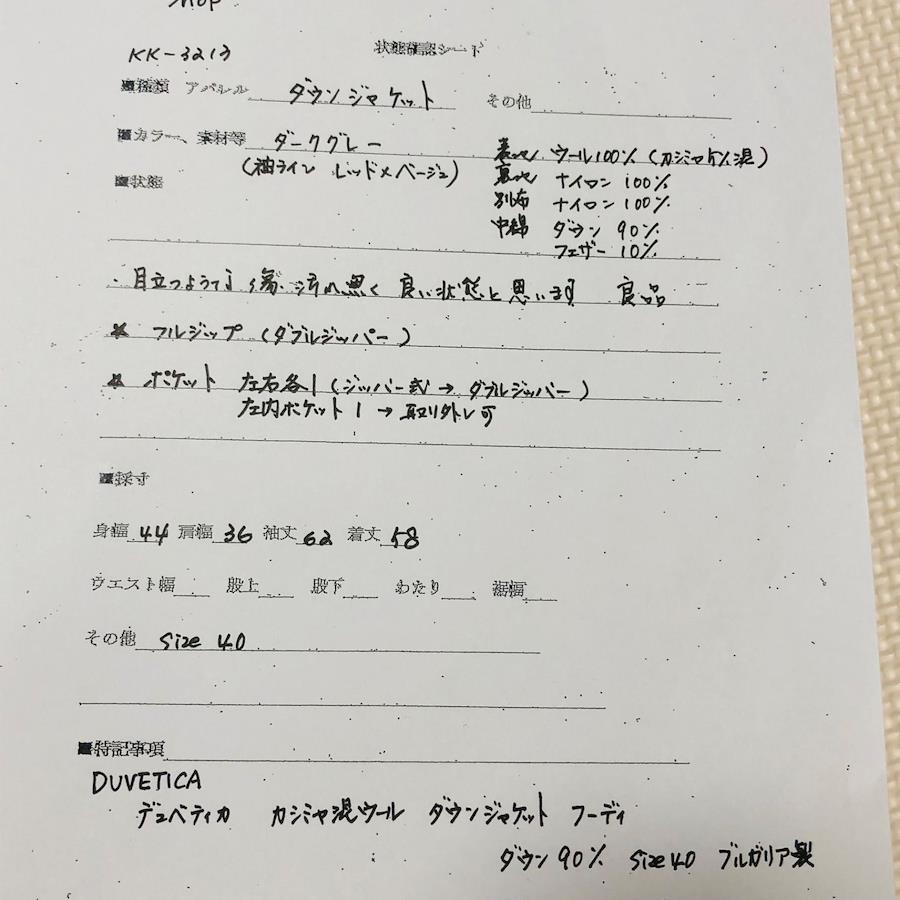 KK-3213
状態確認シート
■種類 アパレル ダウンジャケット その他
■カラー、素材等 ダークグレー
(袖ライン レッド×ベージュ)
表地 ウール100% (カシミヤ混)
裏地 ナイロン 100%
別布 ナイロン 100%
中綿 ダウン 90%
フェザー 10%
■状態
・目立つような傷、汚れ無く 良い状態と思います 良品
* フルジップ (ダブルジッパー)
* ポケット 左右各1 (ジッパー式→ ダブルジッパー)
左内ポケット1 → 取り外し可
■採寸
身幅 44 肩幅 36 袖丈 62 着丈 58
ウエスト幅 股上 股下 わたり 裾幅
その他 size 40
■特記事項
DUVETICA
デュベティカ カシミヤ混ウール ダウンジャケット フーディ
ダウン 90% size40 ブルガリア製